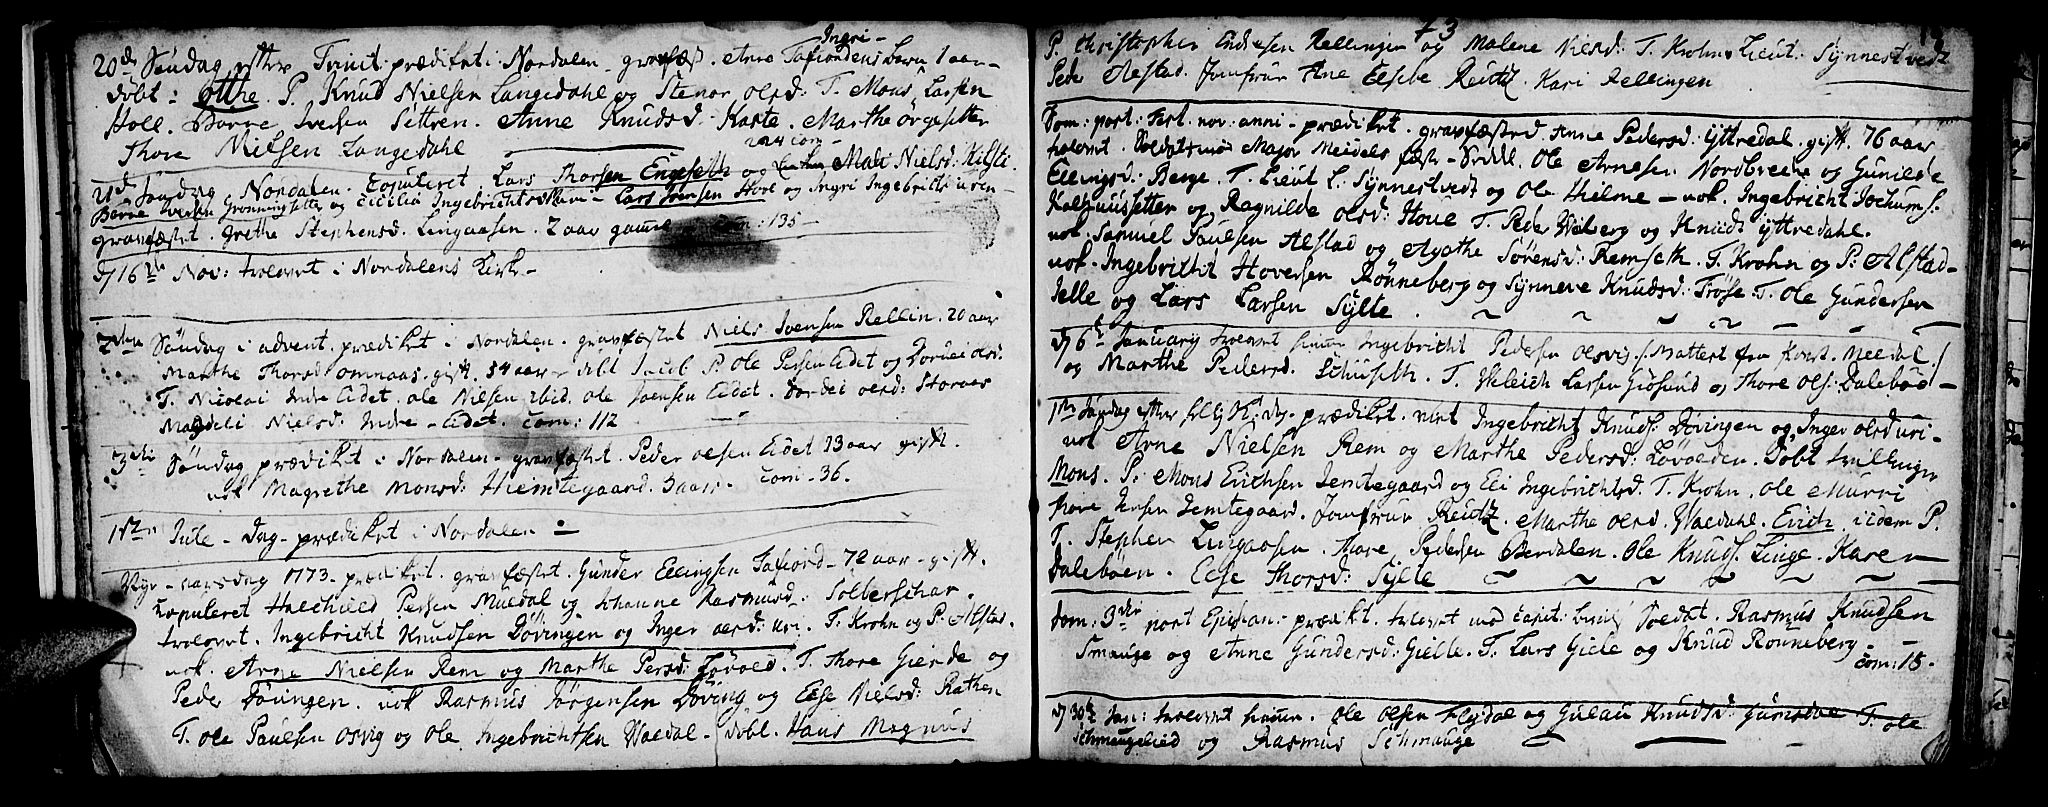 Ingri
20de Søndag efter Trinit: prædiket i Nordalen - gravfæst. Arne Tafiordens barn 1 aar -
døbt: Otthe. P. Knud Nielsen Langedahl og Stenor olsd: T. Mons Larsen
Holl. Borre Iversen Settren. Anne Knudsd: Karte. Marthe ørgesetter
Thore Nielsen Langedahl
21de Søndag Nordalen. Copuleret Lars Thorsen Engeseth og Mali Nielsd: Kilsti
Børre Iversen Grønningsetter og Cicilia Ingebrichtsd - Lars Iversen Hove og Ingri Ingebrichts uren -
gravfæstet. Grethe Stephensd. Lingaasen. 2 aar gammel com: 135 -
d 16de Nov: trolovet i Nordalens Kirke -
2den Søndag i advent. prædiket i Nordalen. gravfæstet Niels Ivensen Rellin. 20 aar
Marthe Thorsd omnaas. gift. 54 aar - døbt P. Ole Persen Eidet og Dordei olsd:
T. Nicolai Indre Eidet. ole Nielsen ibid. ole Joensen Eidet. Dordei olsd: Storaas
Magdeli Nielsd: Indre - Eidet. com: 112
3die Søndag prædiket i Nordalen - gravfæstet. Peder olsen Eidet 73 aar gift.
nok Magrethe Monsd: Hiemtegaard. 3 aar - com - 36.
1ste Jule - Dag - prædiket i Nordalen -
Nyt - aarsdag 1773 - prædiket. gravfæstet. Gunder Ellingsen Tafiord - 72 aar - gift.
Copuleret Halchild Persen Muldal og Johanne Rasmusd: Solberschar.
trolovet. Ingebricht Knudsen Døvingen og Inger olsd: uri. T. Krohn og P. Alstad.
nok. Arne Nielsen Rem og Marthe Persd: Løvoed. T. Thore Gierde og
Peder Døvingen. nok Rasmus Jørgensen Døving og Else Nielsd: Rathen
T. ole Paulsen Osvig og ole Ingebrichtsen Valdal - døbt. Hans Magnus
73
P. Christopher Endresen Rellingen og Malene Nielsd: T. Krohn. Lieut: Synnestvedt
Peder Alstad. Jomfrue Ane Elsebe Reutz. Kari Rellingen
Dom: post: Fest: nov: anni - prædiket. gravfæsted Anne Pedersd: Yttredal. gift 76 aar
trolovet. Major Meidels Ole Arnesen Nordbrecke og Gunilde
Ellingsd: Berge. T. Lieut L: Synnestvedt og Ole Hielme - nok. Ingebricht Jochums:
Kalhussetter og Ragnilde olsd: Hove T. Peder Viberg og Knud Yttredahl.
nok. Samuel Paulsen Alstad og Agathe Sørensd: Remseth. T. Krohn og P. Alstad -
nok. Ingebricht Hoversen Rønneberg og Synneve Knudsd: Trøse. T. Ole Gundersen
Gielle og Lars Larsen Sylte.
d 6te January trolovet Ingebricht Pedersen Olsvig / Mattert fra Korst. Meldal /
og Marthe Pedersd. Schuseth. T. Larsen Giøsund og Thore Ols: Dalebød -
1ste Søndag efter hellig K: dag - prædiket. viet Ingebricht Knuds: Døvingen og Inger olsd uri -
nok Arne Nielsen Rem og Marthe Pedersd: Løvoeden. Døbt tvillinger
Mons. P: Mons Erichsen Jemtegaard og Eli Ingebrichtsd: T. Krohn. Ole Murri
Thore Jensen Jemtegaard. Jomfrue Reutz. Marthe olsd. Valdahl. Erich iidem P.
T. Stephen Lingaasen. Thore Pedersen Berdalen. Ole Knuds. Linge. Karen
Dalebøen. Else Thorsd: Sylte
Dom: 3die post Epiphan: prædiket. trolovet Soldat. Rasmus Knudsen
Smauge og Anne Gundersd: Gielle. T. Lars Gielle og Knud Rønneberg -
com: 18 -
d 30te Jan: trolovet. Ole Olsen Flydal og Gulau Knudsd: Gumsdal T. ole
Schmaugelied og Rasmus Schmauge